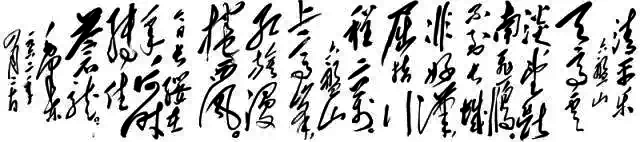 清平乐
六盘山
天高云
淡望断
南飞雁。
不到长城
非好汉,
屈指行
程二万。
六盘山
上高峰,
红旗漫
卷西风。
今日长缨在
手,何时
缚住
苍龙。
毛泽东